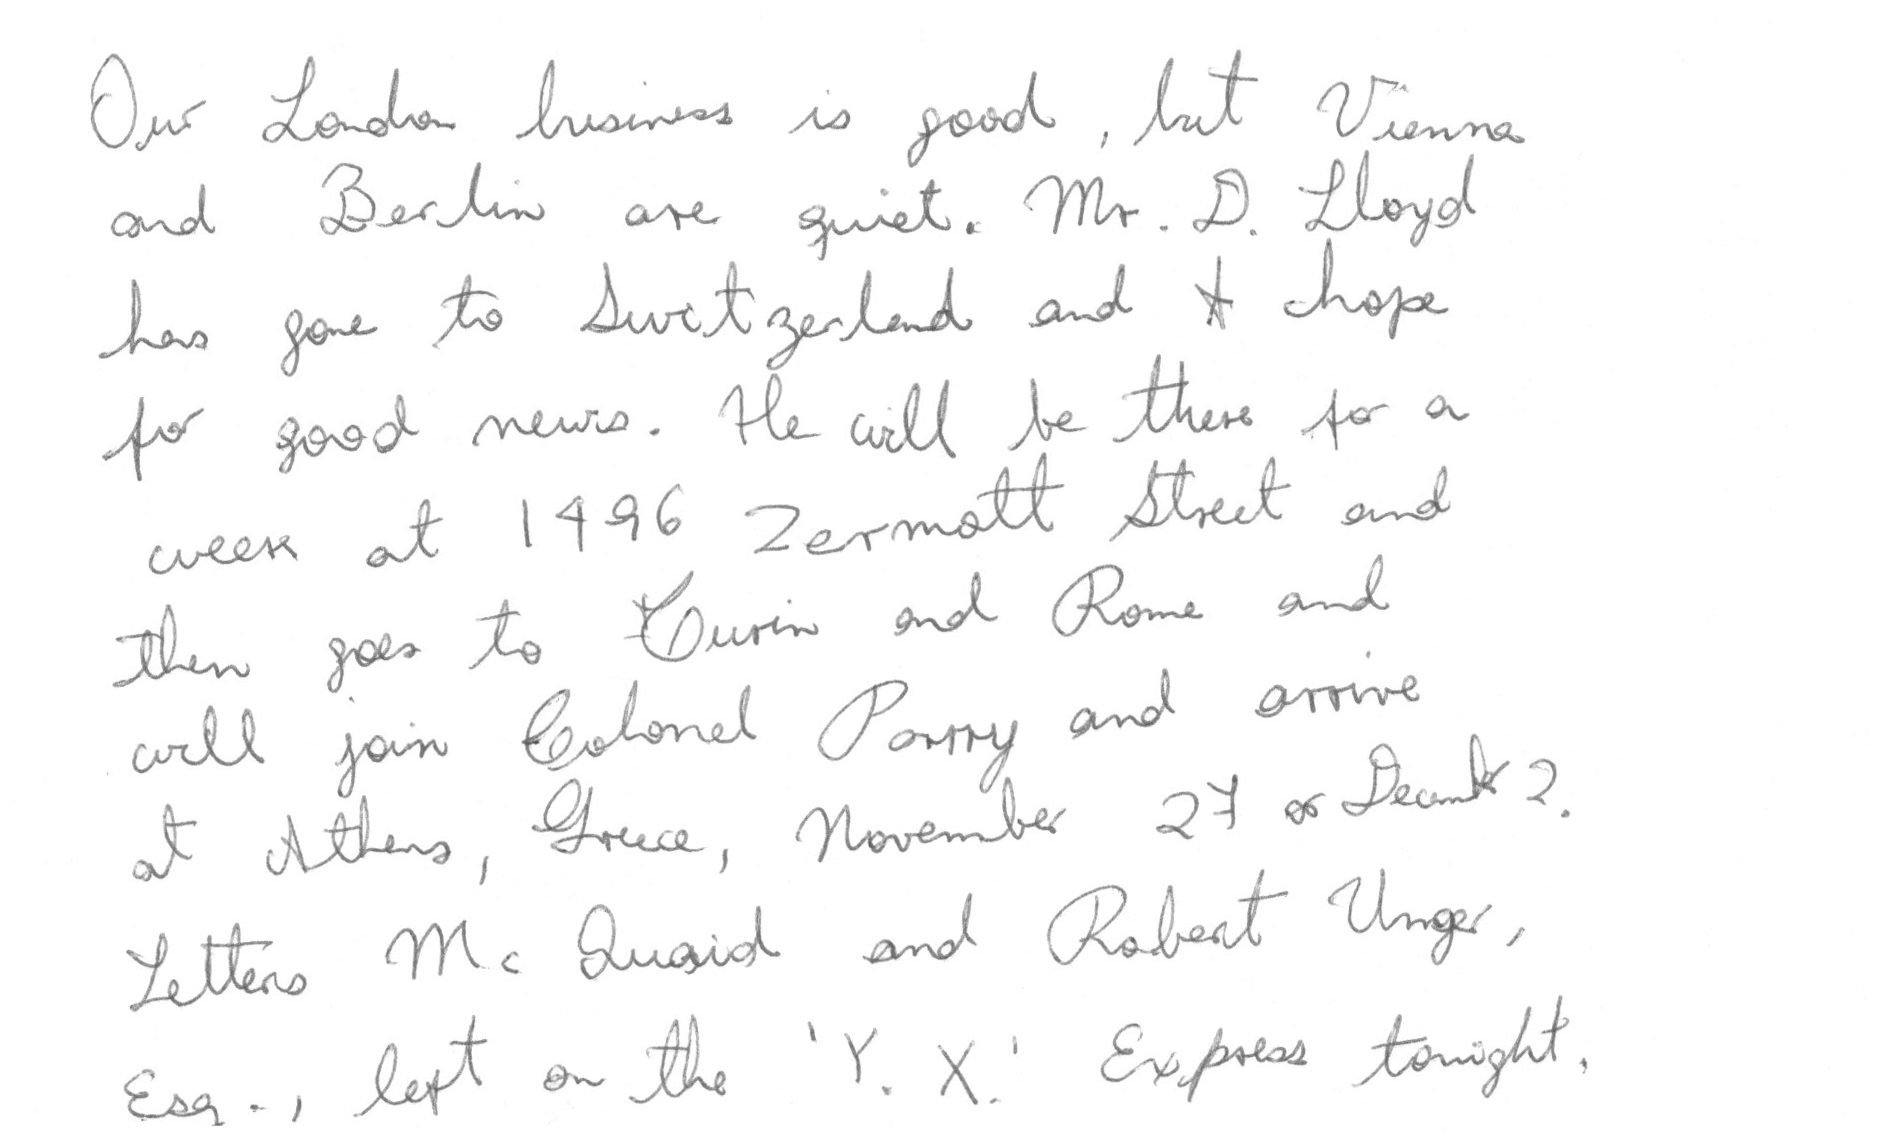 Our London business is good, but Vienna
and Berlin are quiet. Mr. D. Lloyd
has gone to Switzerland and I hope
for good news. He will be there for a
week at 1496 Zermott Street and
then goes to Turin and Rome and
will join Colonel Parry and arrive
at Athens, Greece, November 27 or Decembr 2.
Letters Mc Quaid and Robert Unger,
Esq., left on the 'Y. X.' Express tonight.